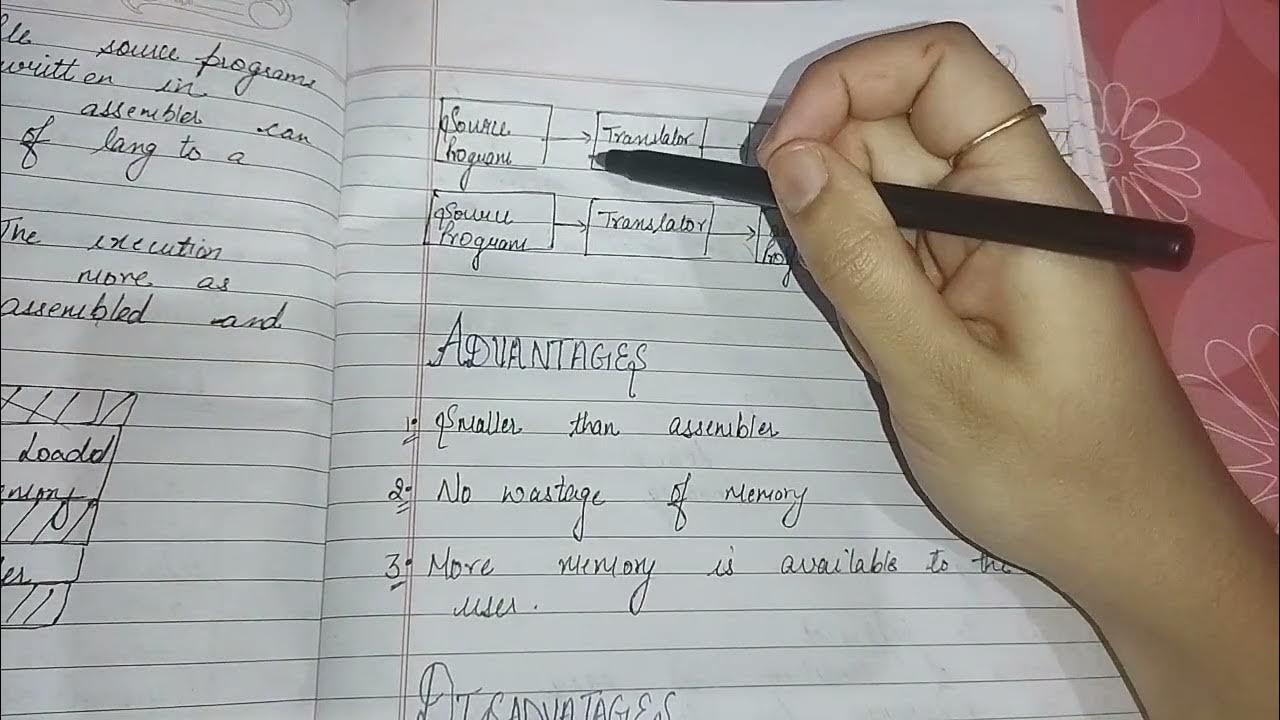 source programs
written in
assembler can
of lang to a
The execution
more as
assembled and
Loadd
Source Translator
Program
Source Translator
Program
ADVANTAGES
1. Smaller than assembler
2. No wastage of Memory
3. More memory is available to the
user.
DISADVATAGES